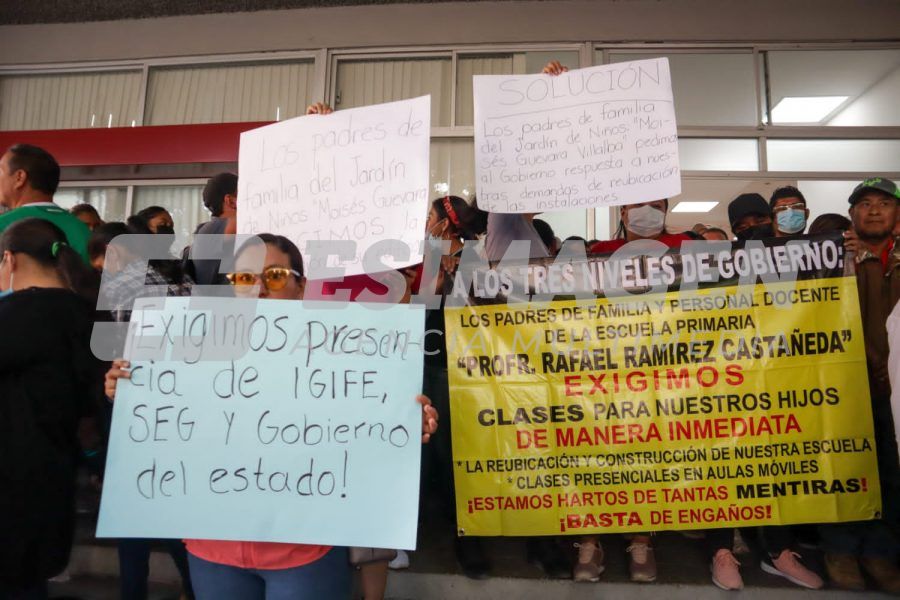 Los padres de
familia del Jardín
de Niños "Moisés Guevara
EXIGIMOS la
SOLUCIÓN
Los padres de familia
del Jardín de Niños: "Moi-
sés Guevara Villalba" pedimos
al Gobierno respuesta a nues-
tras demandas de reubicación de
las instalaciones
Exigimos presen-
cia de IGIFE,
SEG Y Gobierno
del estado!
A LOS TRES NIVELES DE GOBIERNO:
LOS PADRES DE FAMILIA Y PERSONAL DOCENTE
DE LA ESCUELA PRIMARIA
"PROFR. RAFAEL RAMIREZ CASTAÑEDA"
EXIGIMOS
CLASES PARA NUESTROS HIJOS
DE MANERA INMEDIATA
* LA REUBICACIÓN Y CONSTRUCCIÓN DE NUESTRA ESCUELA
* CLASES PRESENCIALES EN AULAS MÓVILES
¡ESTAMOS HARTOS DE TANTAS MENTIRAS!
¡BASTA DE ENGAÑOS!
ESIMAGEN
AGENCIA MULTIMEDIA